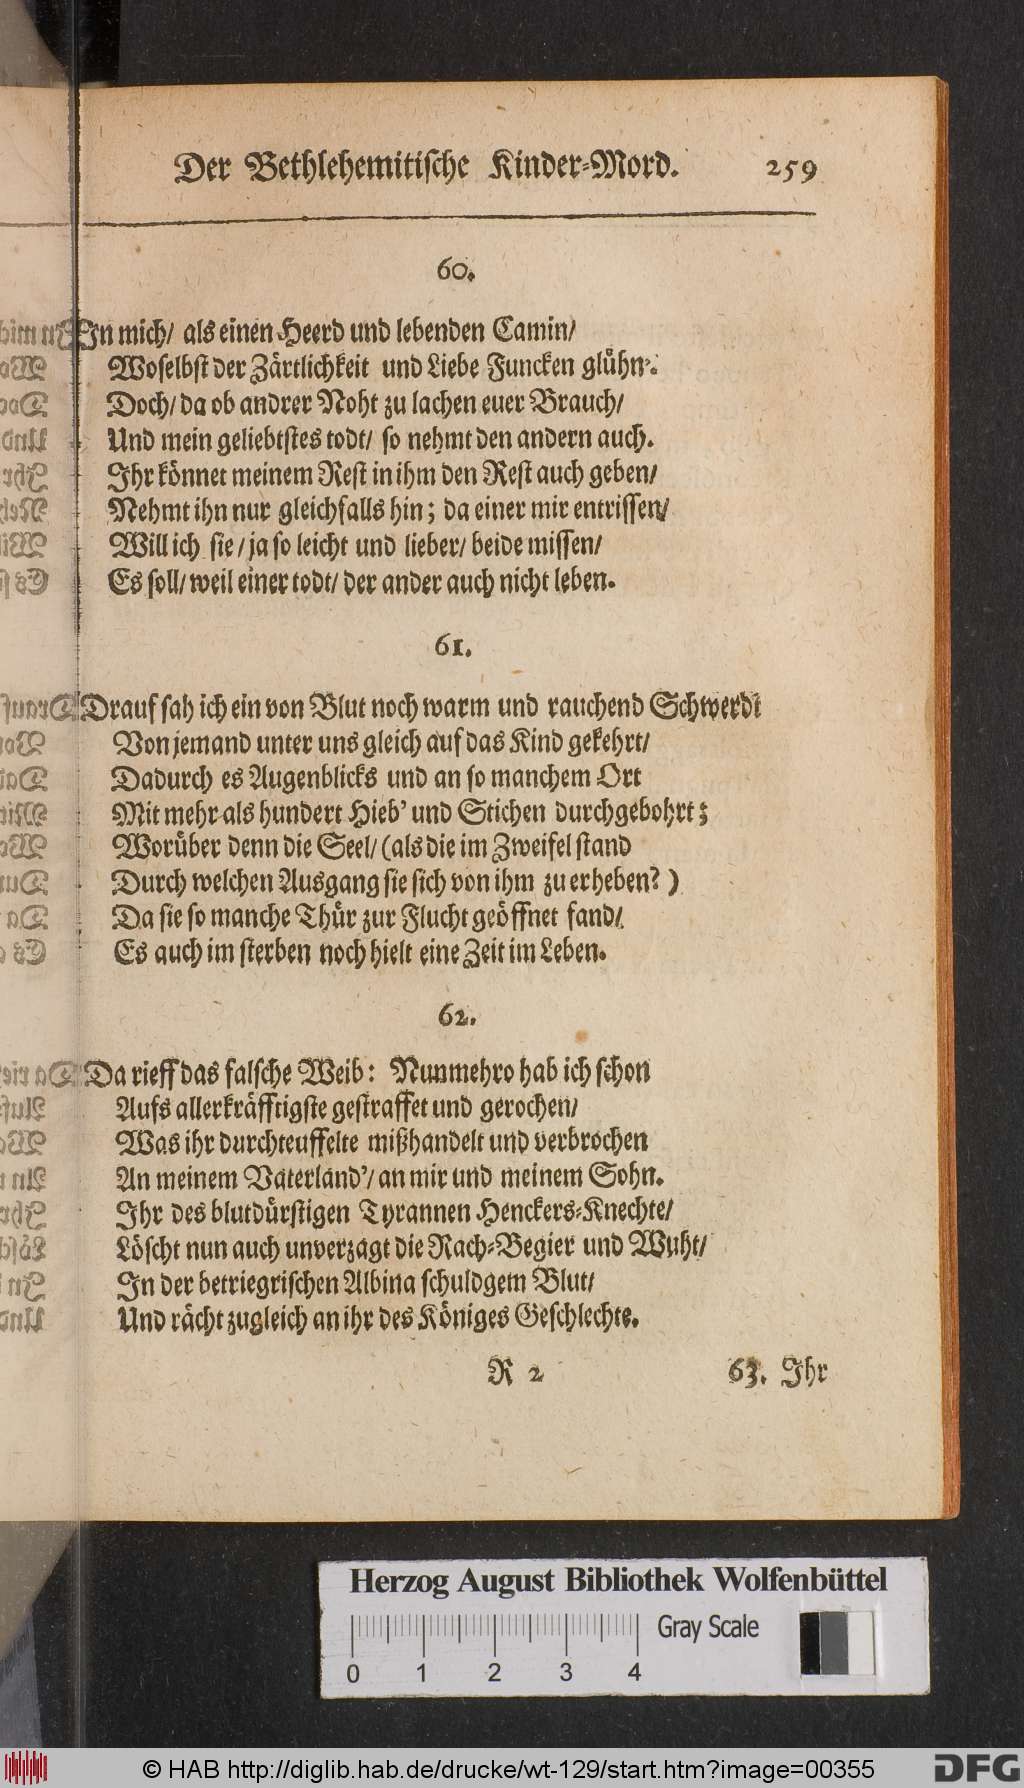 Der Bethlehemitische Kinder-Mord. 259
60.
In mich/ als einen Heerd und lebenden Camin/
Woselbst der Zärtlichkeit und Liebe Funcken glühn.
Doch/ da ob andrer Noht zu lachen euer Brauch/
Und mein geliebtstes todt/ so nehmt den andern auch.
Ihr könnet meinem Rest in ihm den Rest auch geben/
Nehmt ihn nur gleichfalls hin; da einer mir entrissen/
Will ich sie/ ja so leicht und lieber/ beide missen/
Es soll/ weil einer todt/ der ander auch nicht leben.
61.
Drauf sah ich ein von Blut noch warm und rauchend Schwerdt
Von jemand unter uns gleich auf das Kind gekehrt/
Dadurch es Augenblicks und an so manchem Ort
Mit mehr als hundert Hieb' und Stichen durchgebohrt;
Worüber denn die Seel/ (als die im Zweifel stand
Durch welchen Ausgang sie sich von ihm zu erheben?)
Da sie so manche Thür zur Flucht geöffnet fand/
Es auch im sterben noch hielt eine Zeit im Leben.
62.
Da rieff das falsche Weib: Nunmehro hab ich schon
Aufs allerkräfftigste gestraffet und gerochen/
Was ihr durchteuffelte mißhandelt und verbrochen
An meinem Vaterland'/ an mir und meinem Sohn.
Ihr des blutdürstigen Tyrannen Henckers-Knechte/
Löscht nun auch unverzagt die Rach-Begier und Wuht/
In der betriegrischen Albina schuldgem Blut/
Und rächt zugleich an ihr des Königes Geschlechte.
R 2 63. Ihr
Herzog August Bibliothek Wolfenbüttel
Gray Scale
0 1 2 3 4
© HAB http://diglib.hab.de/drucke/wt-129/start.htm?image=00355
DFG